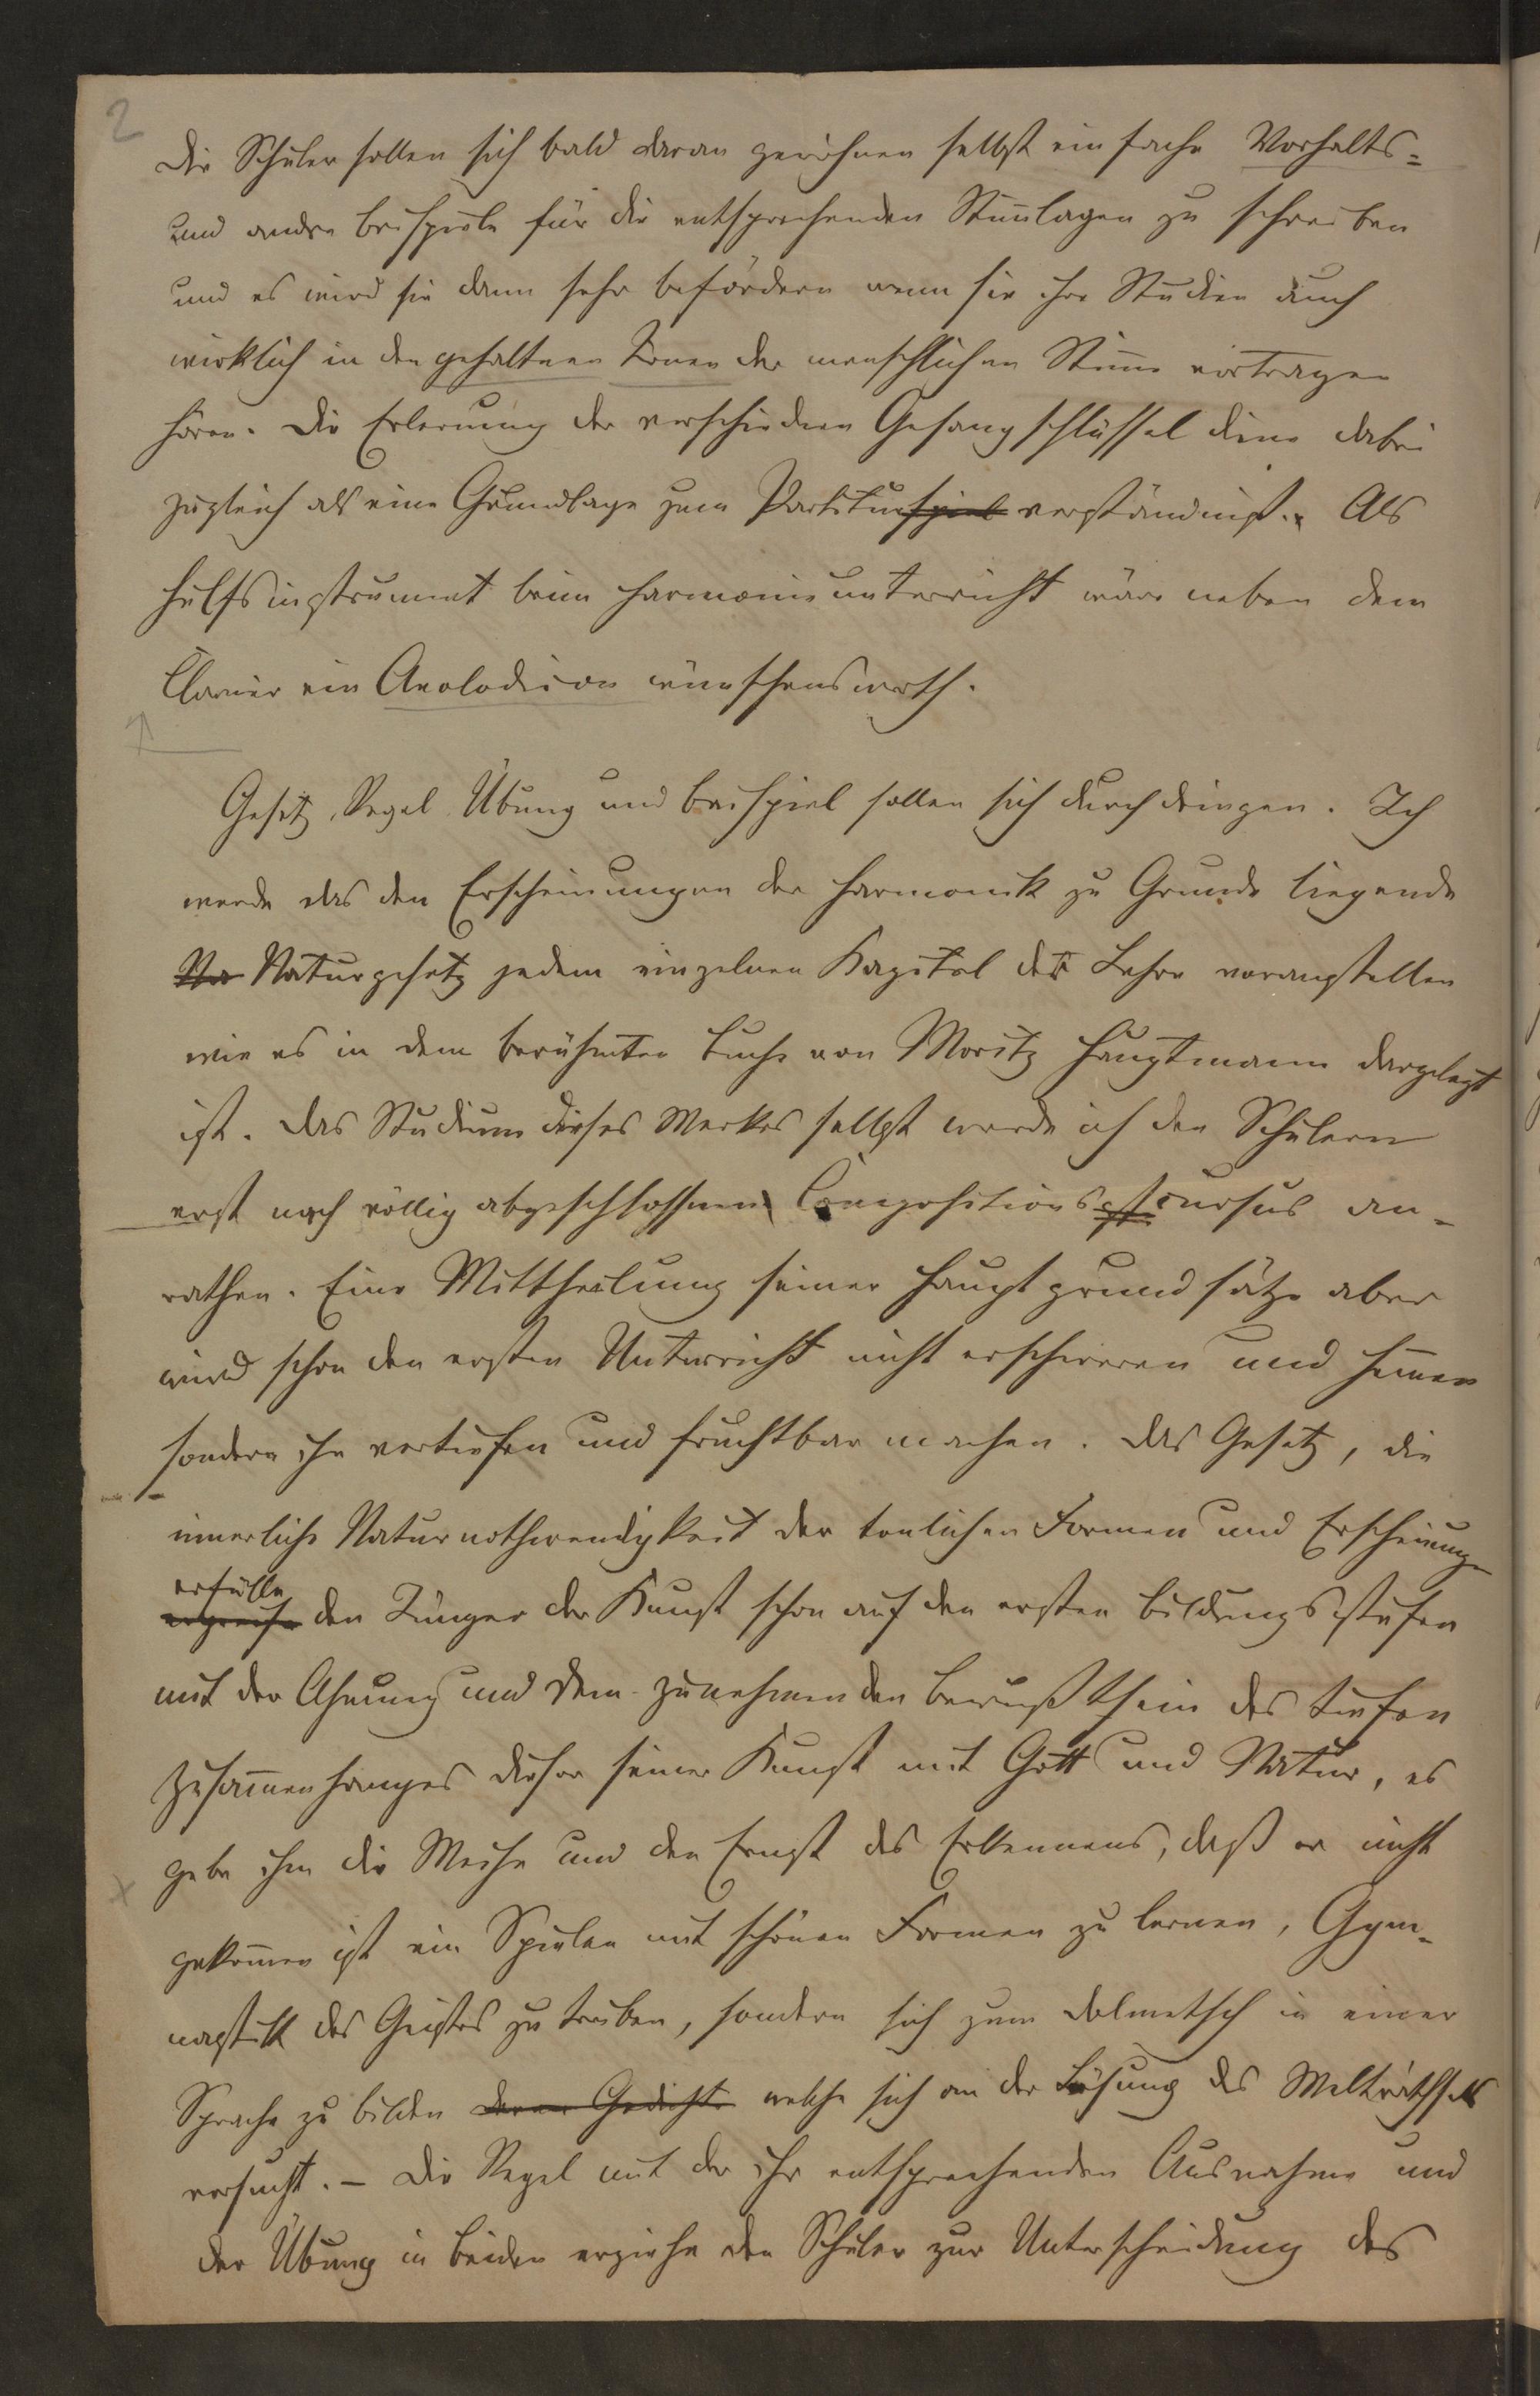 2
Die Schüler sollen sich bald daran gewöhnen selbst einfache Vorhalts=
und andre Beispiele für die entsprechenden Stimlagen zu schreiben
und es wird sie dann sehr befördern wenn sie ihre Studien auch
wirklich in den gehaltnen Tönen der menschlichen Stime vortragen
hören. Die Erlernung der verschiednen Gesangschlüssel diene dabei
zugleich als eine Grundlage zum Partiturspiel verständniß. Als
Hülfsinstrument beim Harmonieunterricht wäre neben dem
Clavier ein Aeolodicon wünschenswerth.
Gesetz, Regel Übung und Beispiel sollen sich durchdringen. Ich
werde das den Erscheinungen der Harmonik zu Grunde liegende
Na Naturgesetz jedem einzelnen Kapitel der Lehre voranstellen
wie es in dem berühmten Buche von Moritz Hauptmann dargelegt
ist. Das Studium dieses Werkes selbst werde ich den Schülern
erst nach völlig abgeschlossnem Compositionscursus an-
rathen. Eine Mittheilung seiner Hauptgrundsätze aber
wird schon den ersten Unterricht nicht erschweren und hemen
sondern ihn vertiefen und fruchtbar machen. Das Gesetz, die
innerliche Naturnothwendigkeit der tonlichen Formen und Erscheinungen
erfülle
ergreife den Jünger der Kunst schon auf den ersten Bildungsstufen
mit der Ahnung und dem zunehmenden Bewußtsein des tiefen
Zusamenhanges dieser seiner Kunst mit Gott und Natur, es
gebe ihm die Weihe und den Ernst des Erkennens, daß er nicht
gekomen ist ein Spielen mit schönen Formen zu lernen, Gym-
nastik des Geistes zu treiben, sondern sich zum Dolmetsch in einer
Sprache zu bilden deren Gedichte welche sich an der Lösung des Welträthsels
versucht. – Die Regel mit der ihr entsprechenden Ausnahme und
der Übung in beiden erziehe den Schüler zur Unterscheidung des